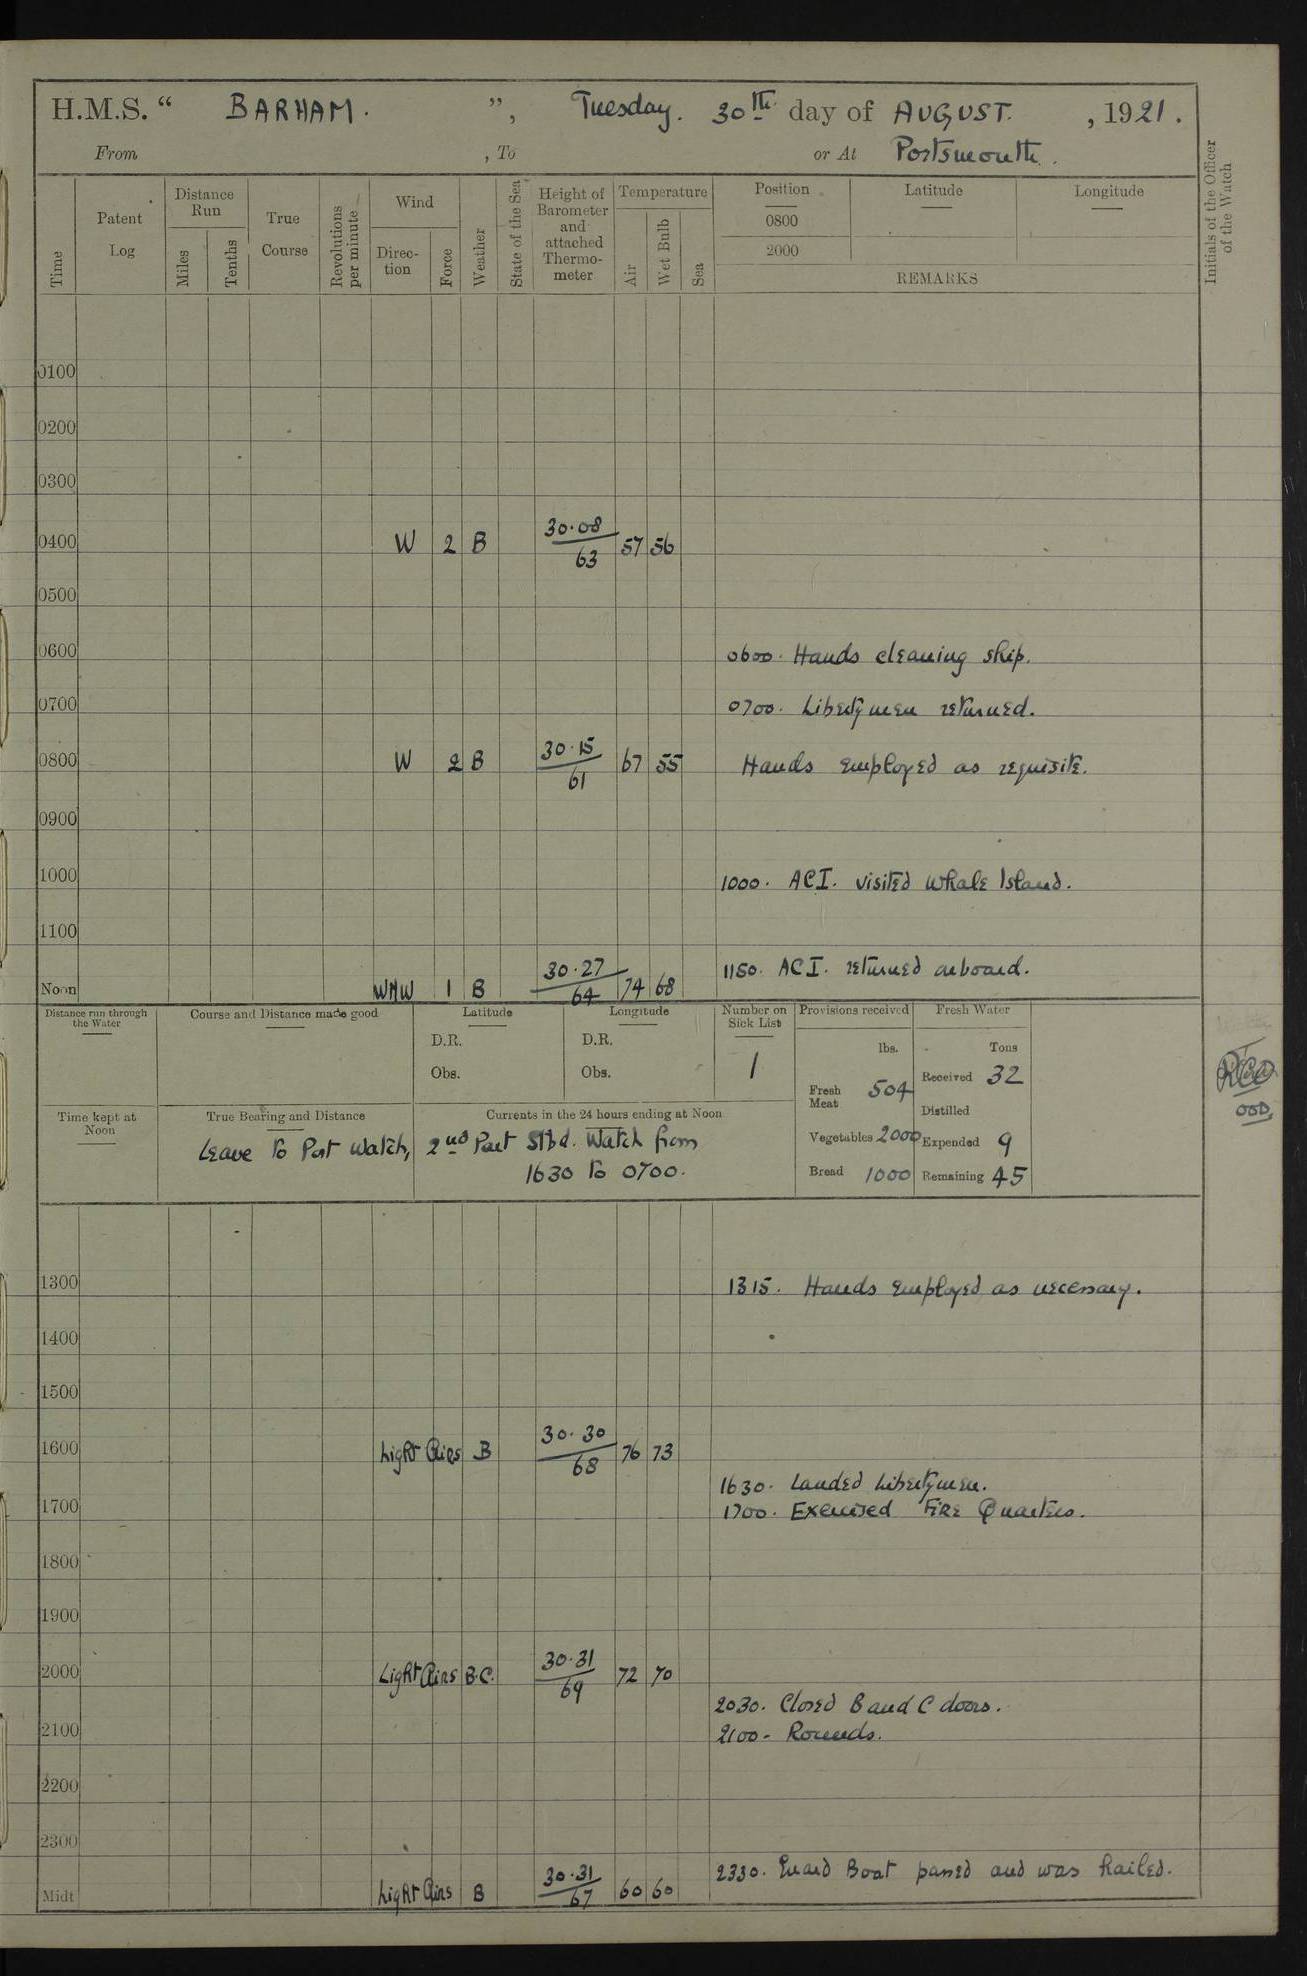 H.M.S. “ BARHAM. ”, Tuesday. 30th. day of AUGUST. , 1921.
From , To or At Portsmouth.
Time
Patent Log
Distance Run
Miles
Tenths
True Course
Revolutions per minute
Wind
Direc-tion
Force
Weather
State of the Sea
Height of Barometer and attached Thermo-meter
Temperature
Air
Wet Bulb
Sea
Position Latitude Longitude
0800
2000
REMARKS
Initials of the Officer of the Watch
0100
0200
0300
0400 W 2 B 30.08/63 57 56
0500
0600 0600. Hands cleaning ship.
0700 0700. Libertymen returned.
0800 W 2 B 30.15/61 67 55 Hands employed as requisite.
0900
1000 1000. ACI. visited Whale Island.
1100
Noon WNW 1 B 30.27/64 74 68 1150. ACI. returned onboard.
Distance run through the Water
Course and Distance made good
Latitude
D.R.
Obs.
Longitude
D.R.
Obs.
Number on Sick List
1
Provisions received
lbs.
Fresh Meat 504
Vegetables 2000
Bread 1000
Fresh Water
Tons
Received 32
Distilled
Expended 9
Remaining 45
OOD.
Time kept at Noon
True Bearing and Distance
Currents in the 24 hours ending at Noon
Leave to Port Watch, 2nd Part Stbd. Watch from
1630 to 0700.
1300 1315. Hands employed as necessary.
1400
1500
1600 Light Airs B 30.30/68 76 73
1630. Landed Libertymen.
1700 1700. Exercised Fire Quarters.
1800
1900
2000 Light Airs B.C. 30.31/69 72 70
2030. Closed B and C doors.
2100 2100- Rounds.
2200
2300
2330. Guard Boat passed and was hailed.
Midt Light Airs B 30.31/67 60 60